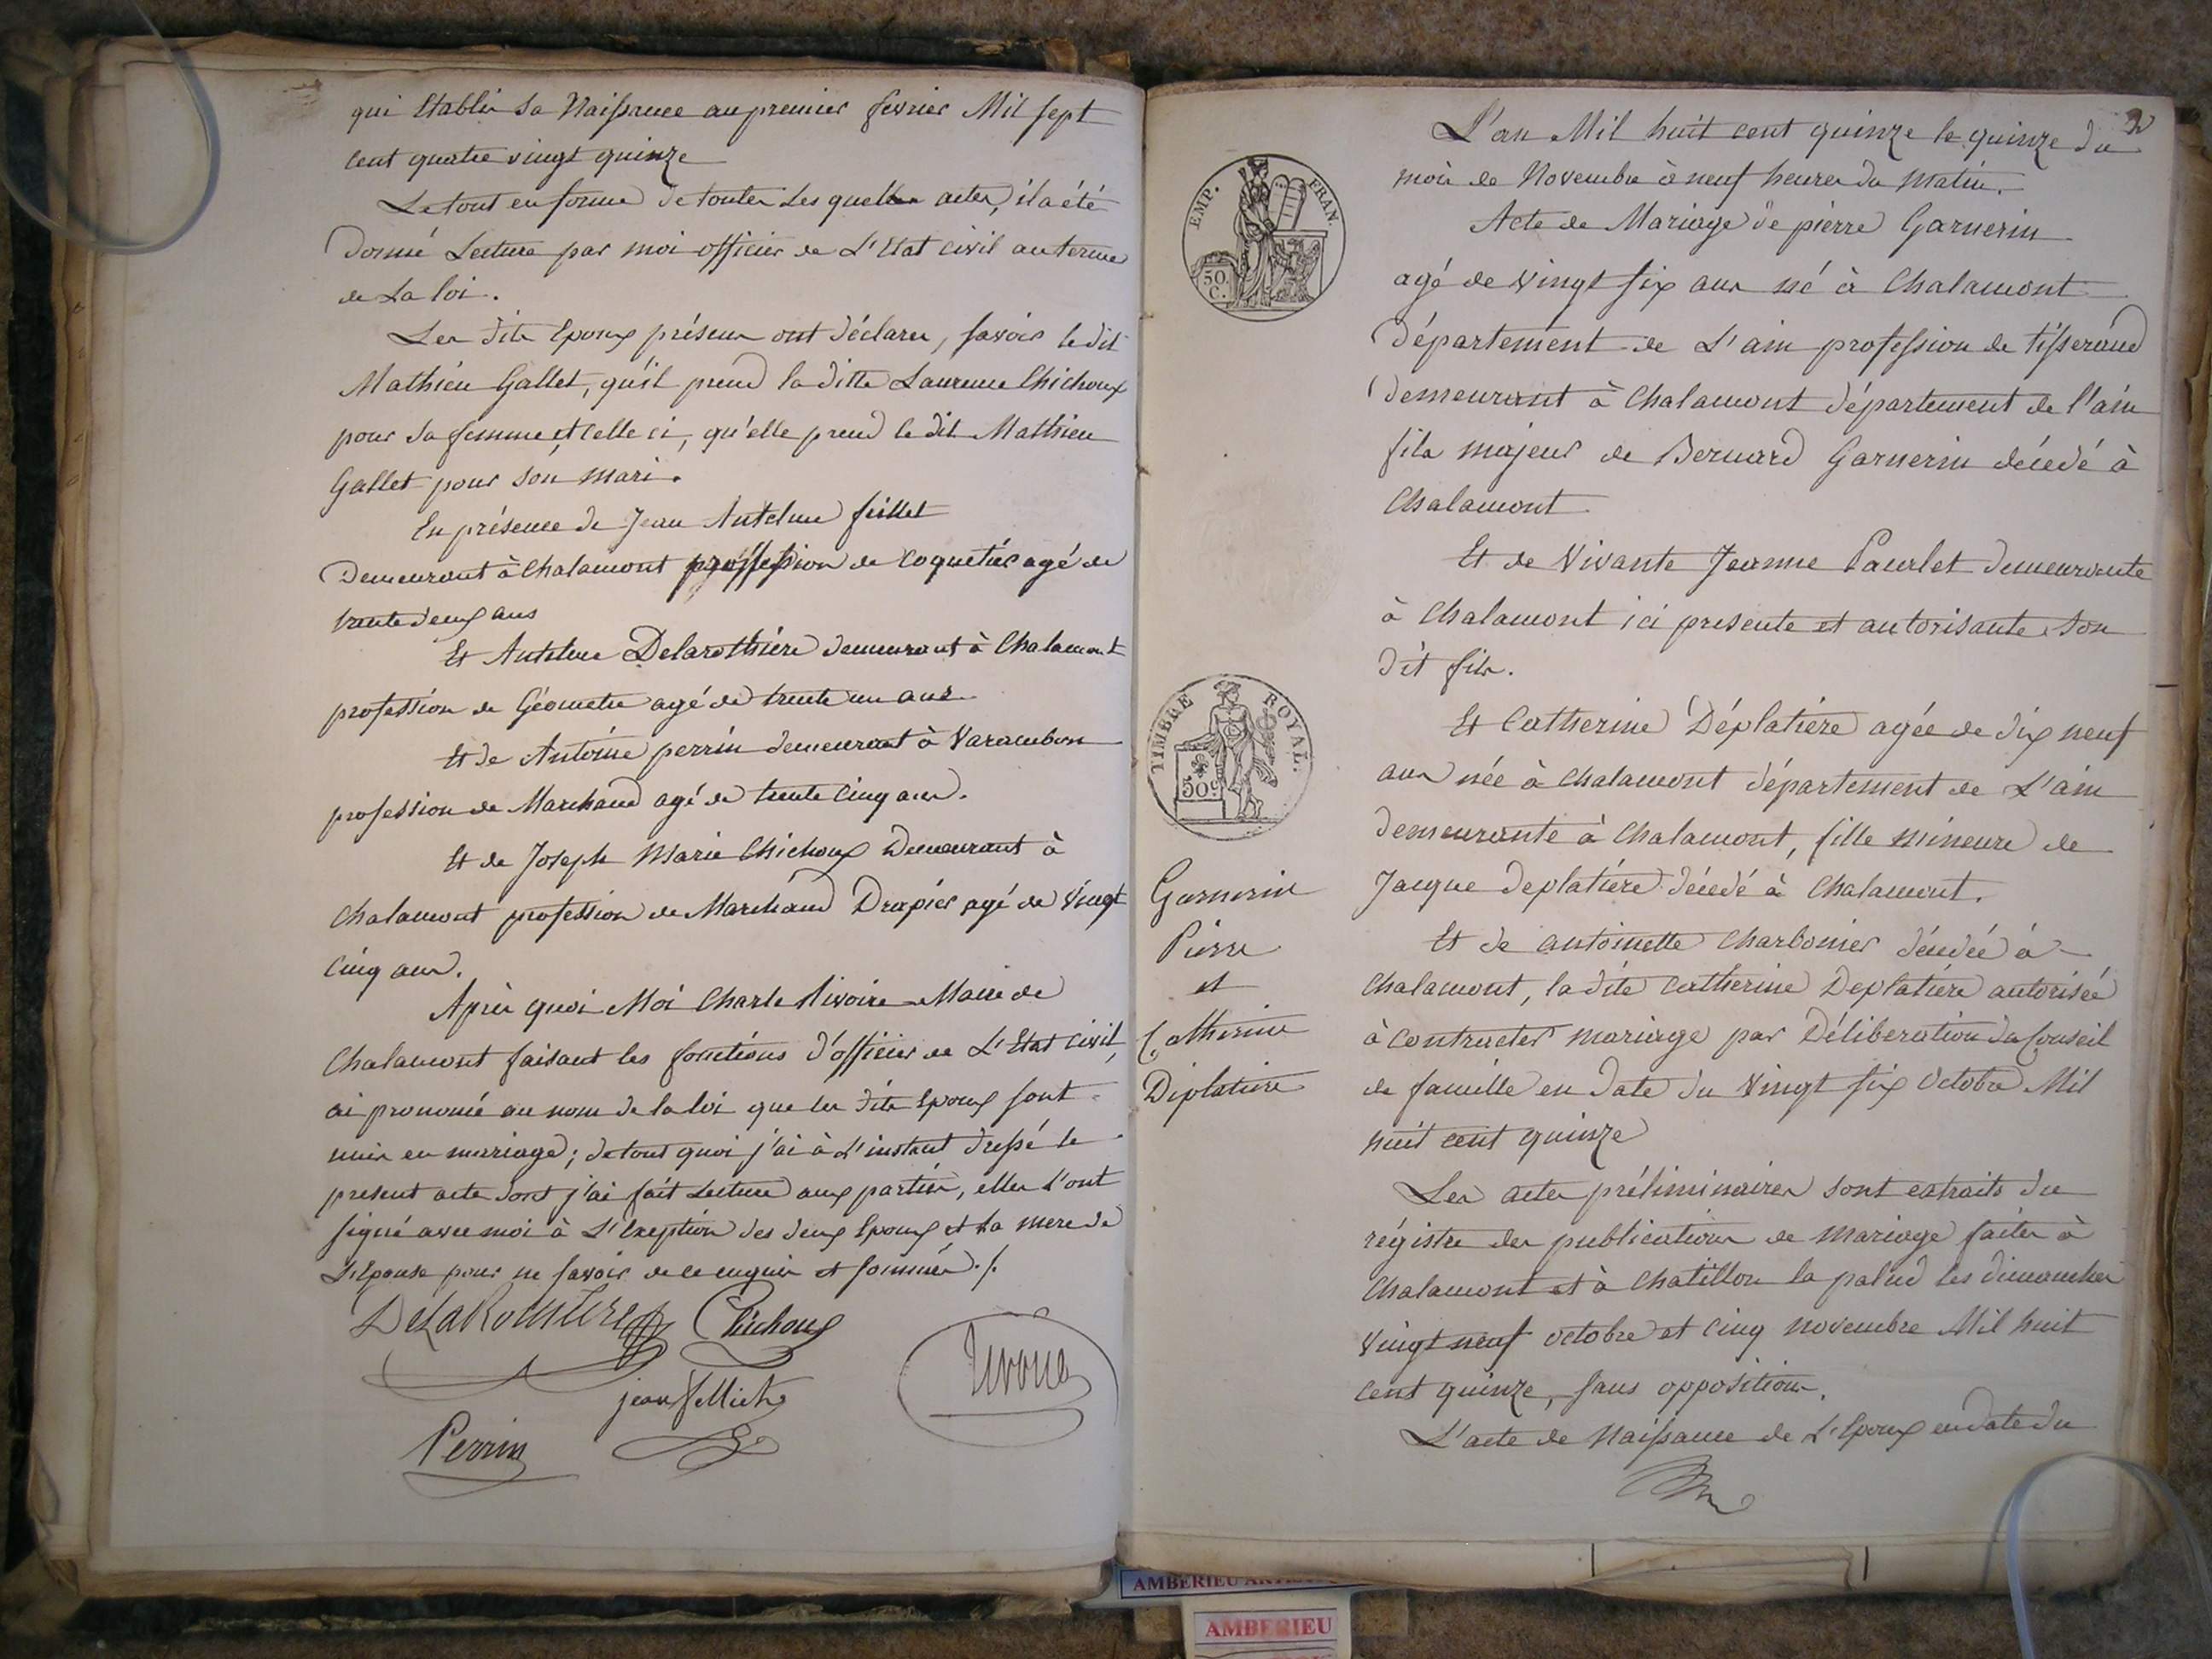 qui Etablie sa Naissance au premier fevrier Mil sept
cent quatre vingt quinze
Le tout en forme de toutes les quelles actes, il a été
donné Lecture par moi officier de L'Etat civil au terme
de La loi.
Les dits Epoux présens ont déclarer, savoir le dit
Mathieu Gallet, qu'il prend la ditte Laurence Chichoux
pour sa femme, et celle ci, qu'elle prend le dit Mathieu
Gallet pour son mari.
En présence de Jean Antelme fillet
Demeurant à Chalamont profession de Coquetier agé de
trente deux ans
Et Antelme Delarothière demeurant à Chalamont
profession de Géometre agé de trente un ans
Et de Antoine perrin demeurant à Varambon
profession de Marchand agé de trente Cinq ans.
Et de Joseph Marie Chichoux Demeurant à
Chalamont profession de Marchand Drapier agé de Vingt
Cinq ans.
Après quoi Moi Charle Rivoire Maire de
Chalamont faisant les fonctions d'officier de L'Etat civil,
ai prononcé au nom de la loi que les dits Epoux sont
unis en mariage; de tout quoi j'ai à L'instant dressé le
present acte dont j'ai fait Lecture aux parties, elles L'ont
signé avec moi à L'Exeption des deux Epoux et La mere de
L'Epouse pour ne savoir de ce enquis et sommés ./.
DeLaRothiere Chichoux
Rivoire
jean
Perrin
2
L'an Mil huit cent quinze le quinze du
mois de Novembre à neuf heures du Matin.
EMP. FRAN.
50 C.
Acte de Mariage de pierre Garnerin
agé de Vingt six ans né à Chalamont
département de L'ain profession de tisserand
demeurant à Chalamont département de l'ain
fils majeur de Bernard Garnerin décedé à
Chalamont
Et de Vivante Jeanne Paurlet demeurante
à Chalamont ici presente et autorisante son
dit fils.
TIMBRE ROYAL.
50 c
Et Catherine Déplatière agée de dix neuf
ans née à Chalamont département de L'ain
demeurante à Chalamont, fille mineure de
Jacque deplatière décedé à Chalamont.
Garnerin
Pierre
et
Catherine
Diplatiere
Et de antoinette Charbonier décedée à
Chalamont, la dite Catherine Deplatière autorisée
à Contracter mariage par Déliberation du Conseil
de famille en date du Vingt six Octobre Mil
huit cent quinze
Les actes préliminaires sont extraits du
régistre des publications de mariage faites à
Chalamont et à Chatillon la palud les dimanches
Vingt neuf octobre et Cinq novembre Mil huit
cent quinze, sans opposition.
L'acte de Naissance de L'Epoux en date du
AMBERIEU
AMBERIEU